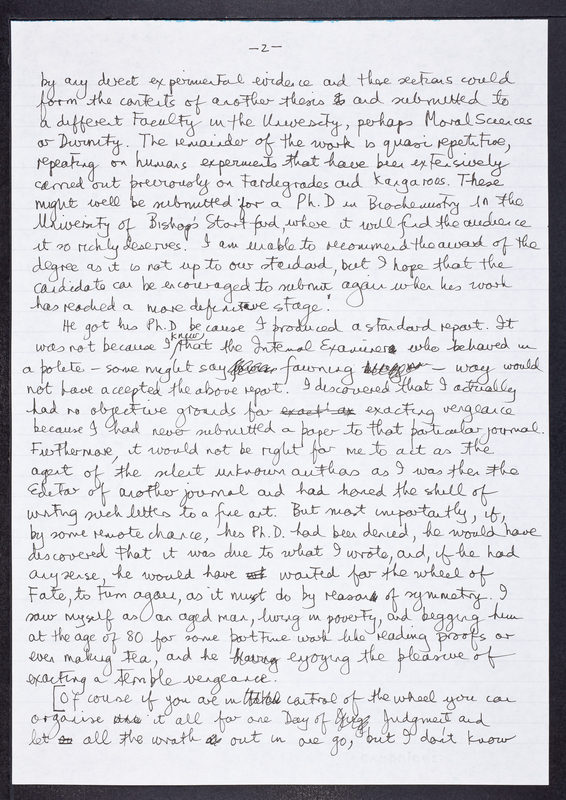 -2-
by any direct experimental evidence and these sections could
form the contents of another thesis and submitted to
a different Faculty in the University, perhaps Moral Sciences
or Divinity. The remainder of the work is quasi repetitive,
repeating on humans experiments that have been extensively
carried out previously on Tardegrades and Kangaroos. These
might well be submitted for a Ph.D in Biochemistry in the
University of Bishop's Stortford, where it will find the audience
it so richly deserves. I am unable to recommend the award of the
degree as it is not up to our standard, but I hope that the
candidate can be encouraged to submit again when his work
has reached a more definitive stage."
He got his Ph.D because I produced a standard report. It
was not because I knew that the Internal Examiner who behaved in
a polite - some might say fawning - way would
not have accepted the above report. I discovered that I actually
had no objective grounds for exacting vengeance
because I had never submitted a paper to that particular journal.
Furthermore, it would not be right for me to act as the
agent of the silent unknown authors as I was then the
Editor of another journal and had honed the skill of
writing such letters to a fine art. But most importantly, if,
by some remote chance, his Ph.D. had been denied, he would have
discovered that it was due to what I wrote, and, if he had
any sense, he would have waited for the wheel of
Fate, to turn again, as it must do by reason of symmetry. I
saw myself as an aged man, living in poverty, and begging him
at the age of 80 for some part time work like reading proofs or
even making tea, and he enjoying the pleasure of
exacting a terrible vengeance.
[Of course if you are in control of the wheel you can
organise it all for one Day of Judgment and
let all the wrath out in one go, but I don't know